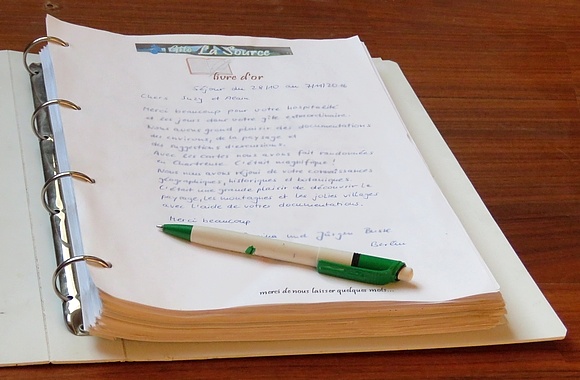 Gîte La Source
livre d'or
Séjour du 28/10 au 7/11/20
Chers Susy et
Merci beaucoup pour votre hospitalité
et les jours dans votre gîte extraordinaire.
Nous avons grand plaisir des documentations
des environs, de la paysage et
des suggestions d'excursions.
Avec les cartes nous avons fait randonnées
en Chartreuse. C'était magnifique!
Nous nous avons réjouis de votre connaissances
géographiques, historiques et botaniques.
C'était une grande plaisir de découvrir le
paysage, les montagnes et les jolies villages
avec l'aide de votres documentations.
Merci beaucoup
und Jürgen
Berlin
merci de nous laisser quelques mots...